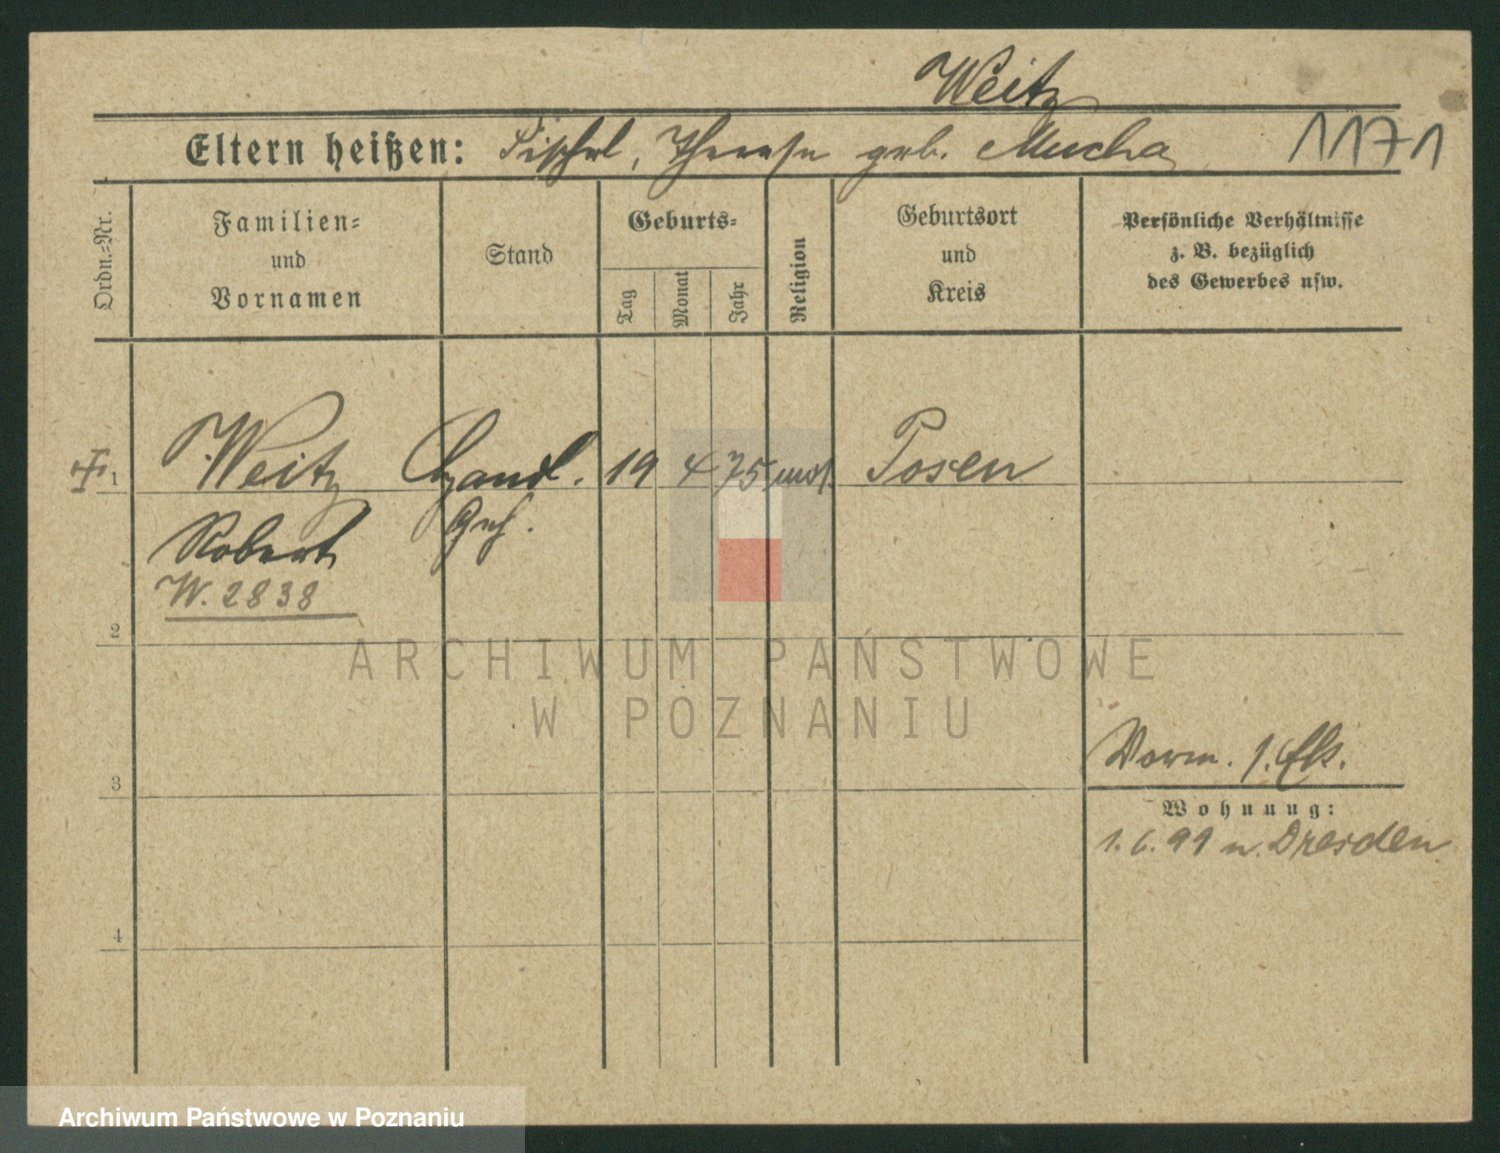 Weitz
Eltern heißen: Fischel, Therese geb. Mucha 1171
Ordn.-Nr.
Familien-
und
Vornamen
Stand
Geburts-
Tag
Monat
Jahr
Religion
Geburtsort
und
Kreis
Persönliche Verhältnisse
z. B. bezüglich
des Gewerbes usw.
1 Weitz Handl. 19 4 75 mos. Posen
Robert Geh.
W. 2838
2
ARCHIWUM PAŃSTWOWE
W POZNANIU
3
Wohnung:
1. 6. 99 n. Dresden
4
Archiwum Państwowe w Poznaniu